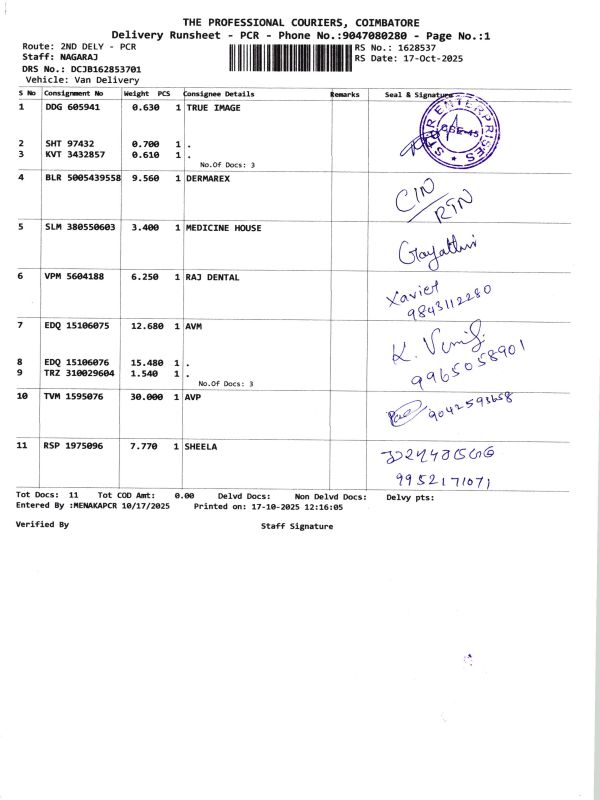 THE PROFESSIONAL COURIERS, COIMBATORE
Delivery Runsheet - PCR - Phone No.:9047080280 - Page No.:1
Route: 2ND DELY - PCR
RS No.: 1628537
Staff: NAGARAJ
RS Date: 17-Oct-2025
DRS No.: DCJB162853701
Vehicle: Van Delivery
S No Consignment No Weight PCS Consignee Details Remarks Seal & Signature
1 DDG 605941 0.630 1 TRUE IMAGE
STAR ENTERPRISES
CBE-45
2 SHT 97432 0.700 1 .
3 KVT 3432857 0.610 1 .
No.Of Docs: 3
4 BLR 5005439558 9.560 1 DERMAREX
CIN
RTN
5 SLM 380550603 3.400 1 MEDICINE HOUSE
Gayathri
6 VPM 5604188 6.250 1 RAJ DENTAL
Xavier
9843112280
7 EDQ 15106075 12.680 1 AVM
K.
8 EDQ 15106076 15.480 1 .
9965058901
9 TRZ 310029604 1.540 1 .
No.Of Docs: 3
10 TVM 1595076 30.000 1 AVP
9042593658
11 RSP 1975096 7.770 1 SHEELA
9952171071
Tot Docs: 11 Tot COD Amt: 0.00 Delvd Docs: Non Delvd Docs: Delvy pts:
Entered By :MENAKAPCR 10/17/2025 Printed on: 17-10-2025 12:16:05
Verified By Staff Signature